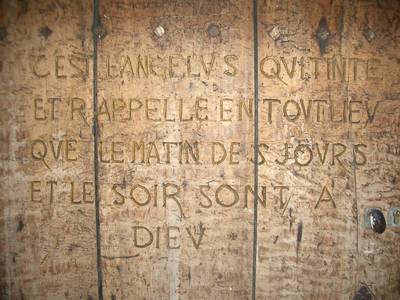 C'EST L'ANGELVS QVI TINTE
ET RAPPELLE EN TOVT LIEV
QVE LE MATIN DES JOVRS
ET LE SOIR SONT A
DIEV